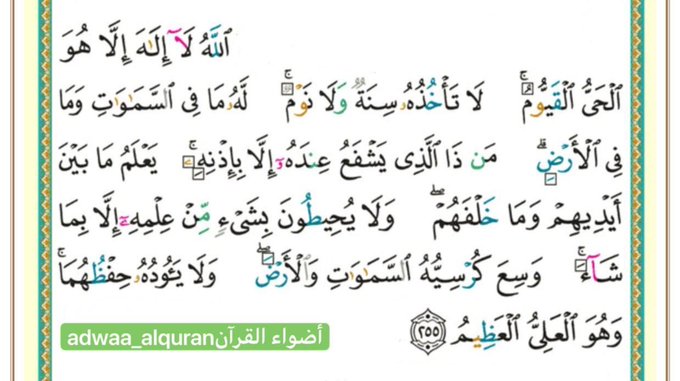 ٱللَّهُ لَآ إِلَٰهَ إِلَّا هُوَ
ٱلْحَىُّ ٱلْقَيُّومُ ۚ لَا تَأْخُذُهُۥ سِنَةٌ وَلَا نَوْمٌ ۚ لَّهُۥ مَا فِى ٱلسَّمَٰوَٰتِ وَمَا
فِى ٱلْأَرْضِ ۗ مَن ذَا ٱلَّذِى يَشْفَعُ عِندَهُۥٓ إِلَّا بِإِذْنِهِۦ ۚ يَعْلَمُ مَا بَيْنَ
أَيْدِيهِمْ وَمَا خَلْفَهُمْ ۖ وَلَا يُحِيطُونَ بِشَىْءٍ مِّنْ عِلْمِهِۦٓ إِلَّا بِمَا
شَآءَ ۚ وَسِعَ كُرْسِيُّهُ ٱلسَّمَٰوَٰتِ وَٱلْأَرْضَ ۖ وَلَا يَـُٔودُهُۥ حِفْظُهُمَا ۚ
وَهُوَ ٱلْعَلِىُّ ٱلْعَظِيمُ ٢٥٥
adwaa_alquranأضواء القرآن